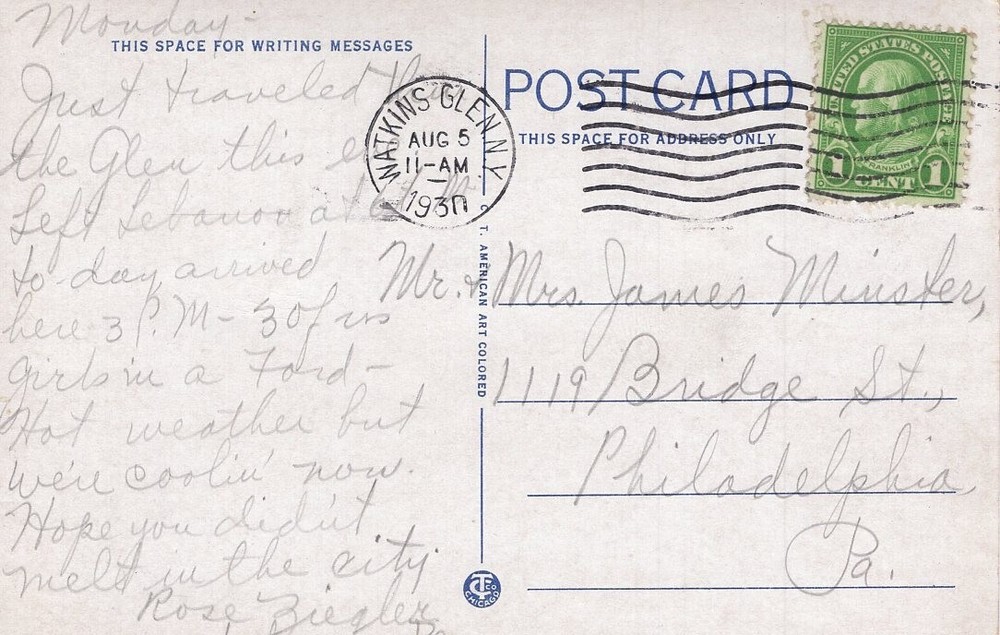 Monday-
THIS SPACE FOR WRITING MESSAGES
Just traveled
the Glen this
Left Lebanon at
to-day arrived
here 3 P.M- 3 of us
girls in a Ford-
Hot weather but
we're coolin' now.
Hope you didn't
melt in the city.
Rose Ziegler
WATKINS GLEN, N.Y.
AUG 5
11-AM
1930
C. T. AMERICAN ART COLORED
CT Co
CHICAGO
POST CARD
THIS SPACE FOR ADDRESS ONLY
UNITED STATES POSTAGE
FRANKLIN
1 CENT 1
Mr. & Mrs. James Minster,
1119 Bridge St.,
Philadelphia
Pa.